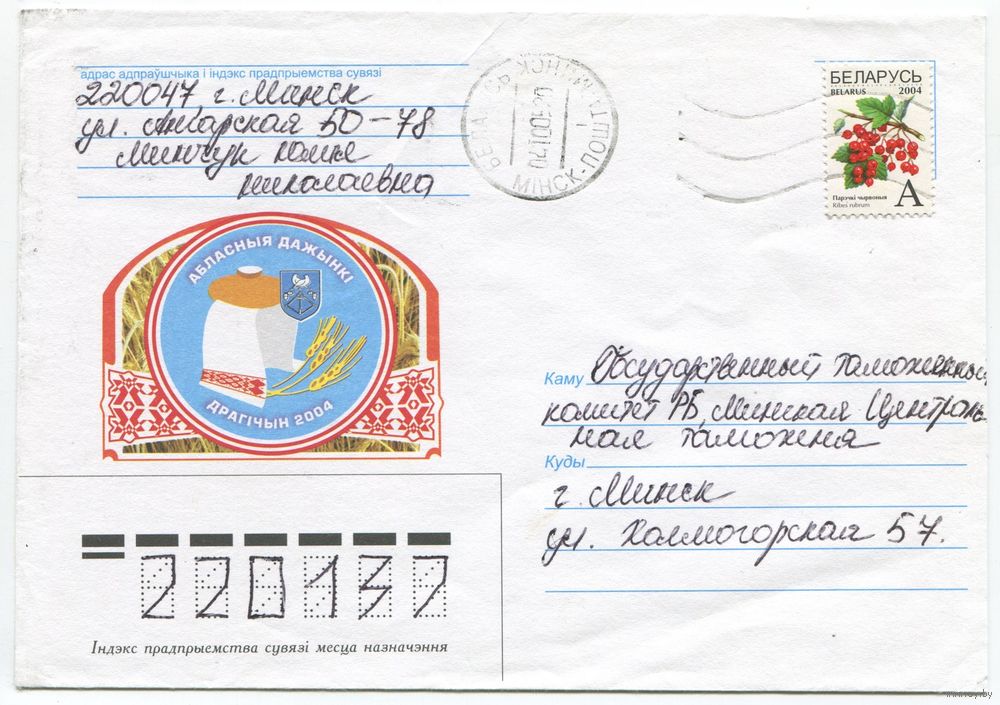 адрас адпраўшчыка і індэкс прадпрыемства сувязі
220047, г. Минск
ул. Ангарская 50-78
Минчук Юлия
николаевна
МІНСК-ПОШТА
БЕЛАРУСЬ
BELARUS 2004
Парэчкі чырвоныя
Ribes rubrum
A
АБЛАСНЫЯ ДАЖЫНКІ
ДРАГІЧЫН 2004
Каму Государственный таможенный
комитет РБ, Минская Централь
ная таможня
Куды
г. Минск
ул. Холмогорская 57.
220137
Індэкс прадпрыемства сувязі месца назначэння